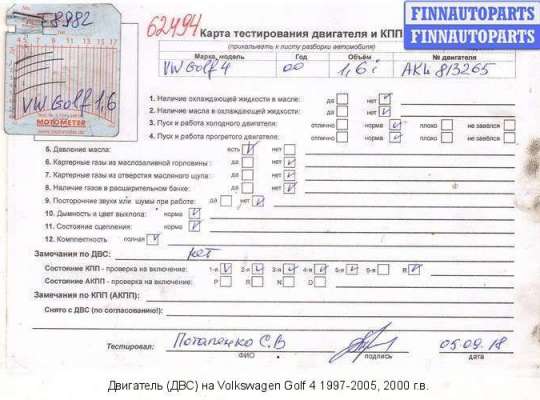 F8982
VW Golf 1,6
MOTOMETER
FINNAUTOPARTS
FINNAUTOPARTS
62494
Карта тестирования двигателя и КПП
(прикалывать к листу разборки автомобиля)
Марка, модель Год Объём № двигателя
VW Golf 4 00 1,6 i AKL 813265
1. Наличие охлаждающей жидкости в масле: да нет V
2. Наличие масла в охлаждающей жидкости: да нет V
3. Пуск и работа холодного двигателя: отлично норма V плохо не завёлся
4. Пуск и работа прогретого двигателя: отлично норма V плохо не завёлся
5. Давление масла: есть V нет
6. Картерные газы из маслозаливной горловины: да нет V
7. Картерные газы из отверстия масляного щупа: да нет V
8. Наличие газов в расширительном бачке: да нет V
9. Посторонние звуки или шумы при работе: да нет V
10. Дымность и цвет выхлопа: норма V
11. Состояние сцепления: норма V
12. Комплектность полная V
Замечания по ДВС: нет
Состояние КПП - проверка на включение: 1-я V 2-я V 3-я V 4-я V 5-я V 6-я R V
Состояние АКПП - проверка на включение: P R N D
Замечания по КПП (АКПП):
Снято с ДВС (по согласованию!):
Тестировал: Потапенко С.В 05.09.18
ФИО подпись дата
Двигатель (ДВС) на Volkswagen Golf 4 1997-2005, 2000 г.в.